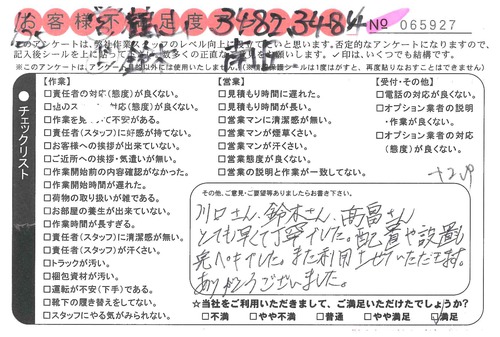 お客様不満足度 3487,3484 No 065927
このアンケートは、弊社作業スタッフのレベル向上に役立てたいと思います。否定的なアンケートになりますので、
記入後シールを上に貼って 数多くの正直な意見をお願いします。✓印は、いくつでも結構です。
※このアンケートは、作業 以外には使用いたしません。
チェックリスト
【作業】
□責任者の対応(態度)が良くない。
応(態度)が良くない。
□作業を 不安がある。
□責任者(スタッフ)に好感が持てない。
□お客様への挨拶が出来ていない。
□ご近所への挨拶・気遣いが無い。
□作業開始前の内容確認がなかった。
□作業開始時間が遅れた。
□荷物の取り扱いが雑である。
□お部屋の養生が出来ていない。
□作業時間が長すぎる。
□責任者(スタッフ)に清潔感が無い。
□責任者(スタッフ)が汗くさい。
□トラックが汚い。
□梱包資材が汚い。
□運転が不安(下手)である。
□靴下の履き替えをしてない。
□スタッフにやる気がみられない。
【営業】
□見積もり時間に遅れた。
□見積もり時間が長い。
□営業マンに清潔感が無い。
□営業マンが煙草くさい。
□営業マンが汗くさい。
□営業態度が良くない。
□営業の説明と作業が一致してない。
【受付・その他】
□電話の対応が良くない。
□オプション業者の説明
・作業が良くない。
□オプション業者の対応
(態度)が良くない。
その他、ご意見・ご要望等ありましたらお書き下さい。
川口さん、鈴木さん、高畠さん
とても早くて丁寧でした。配置や設置も
完ペキでした。また利用させていただきます。
ありがとうございました。
☆当社をご利用いただきまして、ご満足いただけたでしょうか?
□不満 □やや不満 □普通 □やや満足 ☑満足